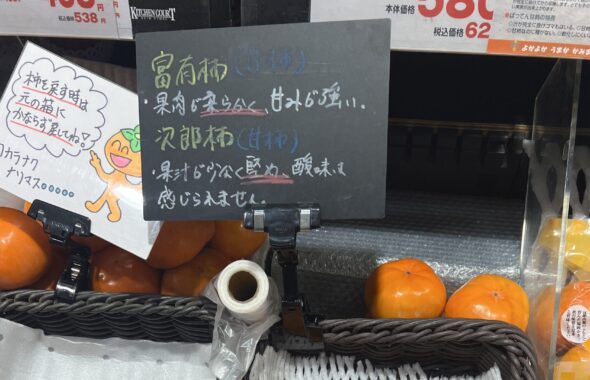 税込価格 538円
KITCHEN COURT
本体価格 580
税込価格 62
よかよか うまか かみま
柿を戻す時は
元の箱に
かならず戻してね!
カラナク
ナリマス.....
富有柿(甘柿)
・果肉が柔らかく、甘みが強い。
次郎柿(甘柿)
・果汁が少なく堅め、酸味は
感じられません。